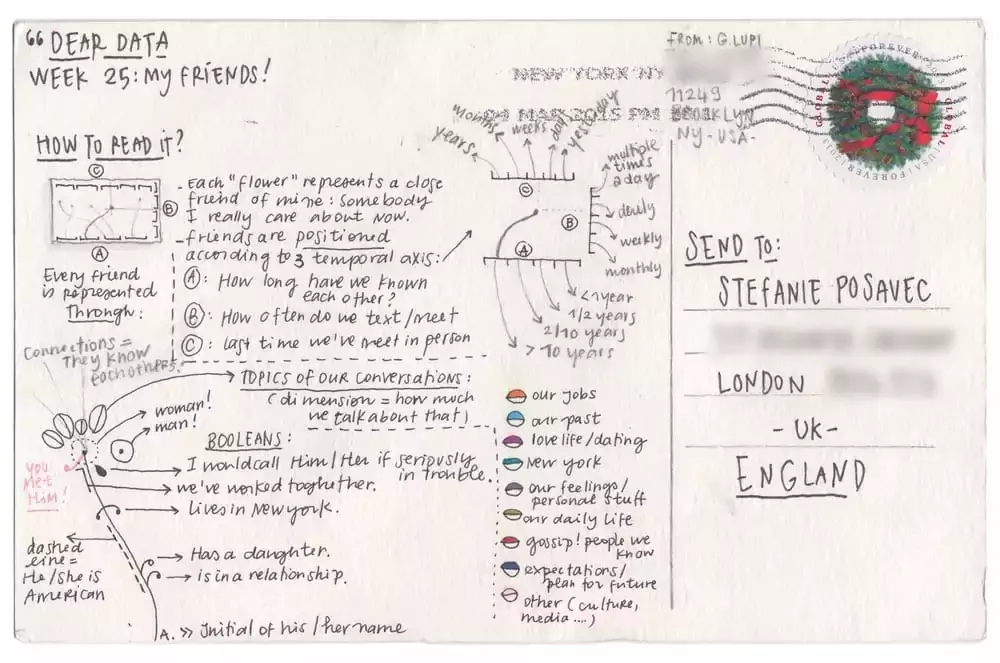 “ DEAR DATA
WEEK 25: MY FRIENDS!
HOW TO READ IT?
C
B
A
Every friend
is represented
Through:
- Each "flower" represents a close
friend of mine: somebody
I really care about now.
- friends are positioned
according to 3 temporal axis:
A: How long have we known
each other?
B: How often do we text/meet
C: last time we've meet in person
years
months
weeks
days
yesterday
C
multiple
times
a day
daily
weekly
monthly
B
A
<1 year
1/2 years
2/10 years
> 10 years
Connections =
They know
each others.
TOPICS OF OUR CONVERSATIONS:
(dimension = how much
we talk about that)
woman!
man!
BOOLEANS:
you
met
Him!
I would call Him/Her if seriously
in trouble.
we've worked toghether.
lives in New York.
dashed
line =
He/she is
American
Has a daughter.
is in a relationship.
A. >> Initial of his/her name
our jobs
our past
love life/dating
New York
our feelings/
personal stuff
our daily life
gossip! people we
know
expectations/
plan for future
other (culture,
media ....)
FROM: G. LUPI
11249
BROOKLYN
NY - USA -
NEW YORK NY
04 MAR 2015 PM
GLOBAL
FOREVER
USA
SEND TO:
STEFANIE POSAVEC
LONDON
- UK -
ENGLAND